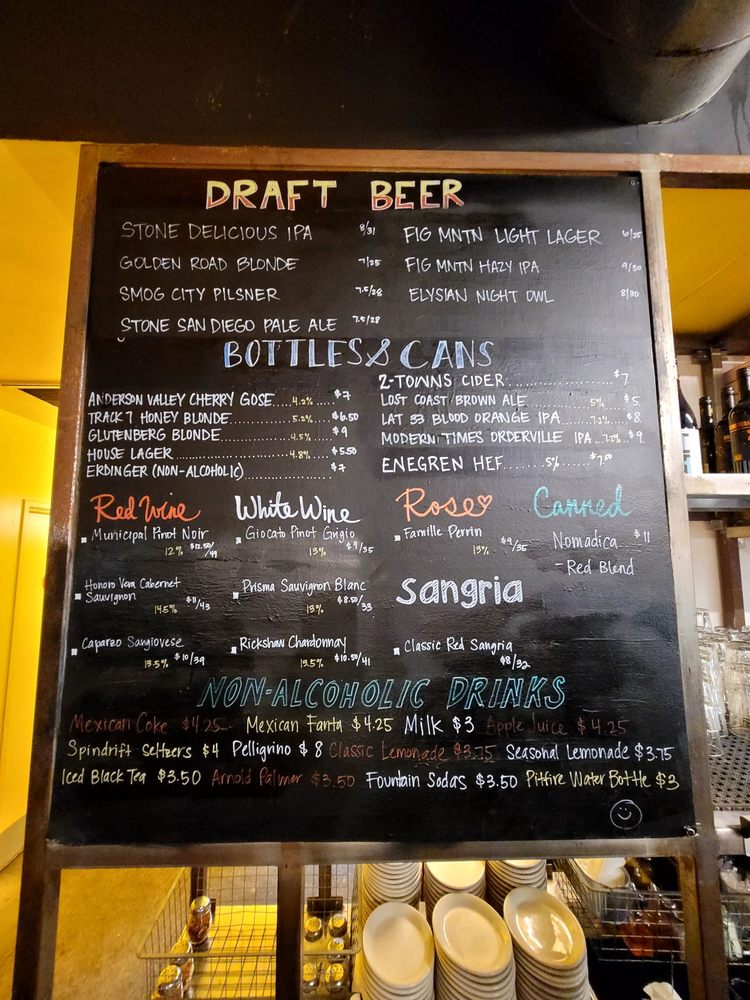 DRAFT BEER
STONE DELICIOUS IPA 8/31
FIG MNTN LIGHT LAGER 6/25
GOLDEN ROAD BLONDE 7/25
FIG MNTN HAZY IPA 9/30
SMOG CITY PILSNER 7.5/28
ELYSIAN NIGHT OWL 8/30
STONE SAN DIEGO PALE ALE 7.5/28
BOTTLES & CANS
ANDERSON VALLEY CHERRY GOSE....4.2%..$7
TRACK 7 HONEY BLONDE............5.2%..$6.50
GLUTENBERG BLONDE............4.5%...$9
HOUSE LAGER....................4.8%..$5.50
ERDINGER (NON-ALCOHOLIC)................$7
2-TOWNS CIDER......................$7
LOST COAST BROWN ALE...........5%...$5
LAT 33 BLOOD ORANGE IPA.....7.2%..$8
MODERN TIMES ORDERVILLE IPA..7.2%..$9
ENEGREN HEF......5%.....$7.50
Red Wine
Municipal Pinot Noir
12% $12.50/49
Honoro Vera Cabernet
Sauvignon
14.5% $11/43
Caparzo Sangiovese
13.5% $10/39
White Wine
Giocato Pinot Grigio
13% $9/35
Prisma Sauvignon Blanc
13% $8.50/33
Rickshaw Chardonnay
13.5% $10.50/41
Rose
Famille Perrin
13% $9/35
Sangria
Classic Red Sangria
$8/32
Canned
Nomadica $11
-Red Blend
NON-ALCOHOLIC DRINKS
Mexican Coke $4.25 Mexican Fanta $4.25 Milk $3 Apple Juice $4.25
Spindrift Seltzers $4 Pelligrino $8 Classic Lemonade $3.75 Seasonal Lemonade $3.75
Iced Black Tea $3.50 Arnold Palmer $3.50 Fountain Sodas $3.50 Pitfire Water Bottle $3